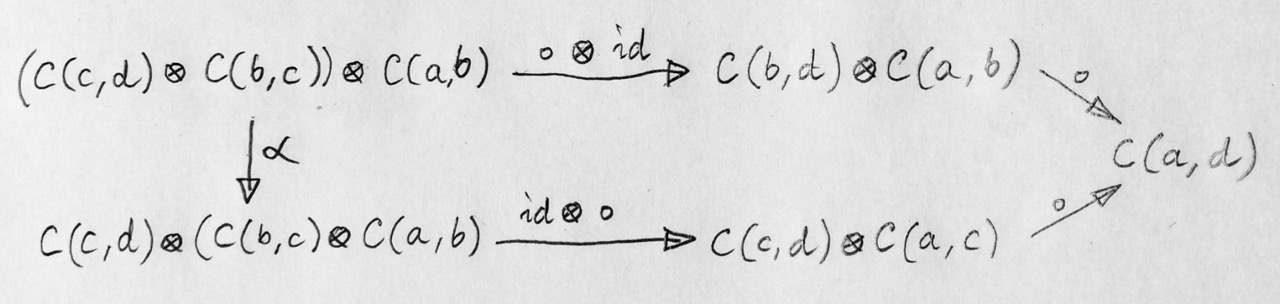 (C(c,d) ⊗ C(b,c)) ⊗ C(a,b) ∘ ⊗ id C(b,d) ⊗ C(a,b) ∘
α
C(a,d)
C(c,d) ⊗ (C(b,c) ⊗ C(a,b) id ⊗ ∘ C(c,d) ⊗ C(a,c) ∘